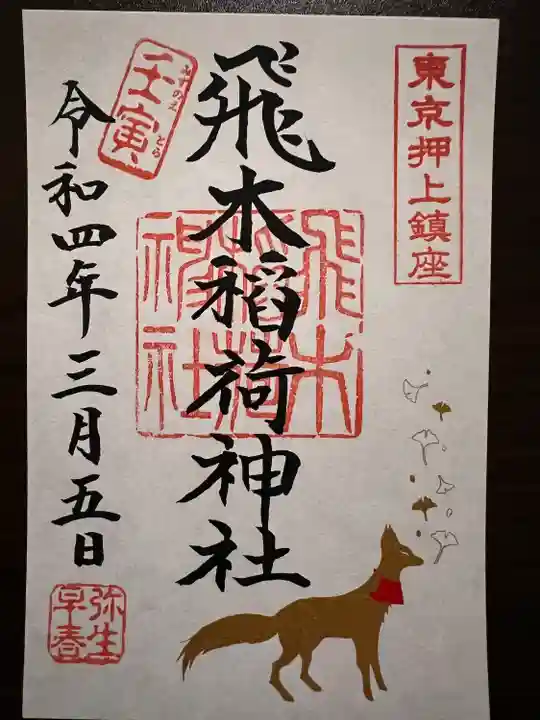 東京押上鎮座
飛木稲荷神社
飛木
稲荷
神社
壬寅
みずのえ
とら
令和四年三月五日
弥生
早春